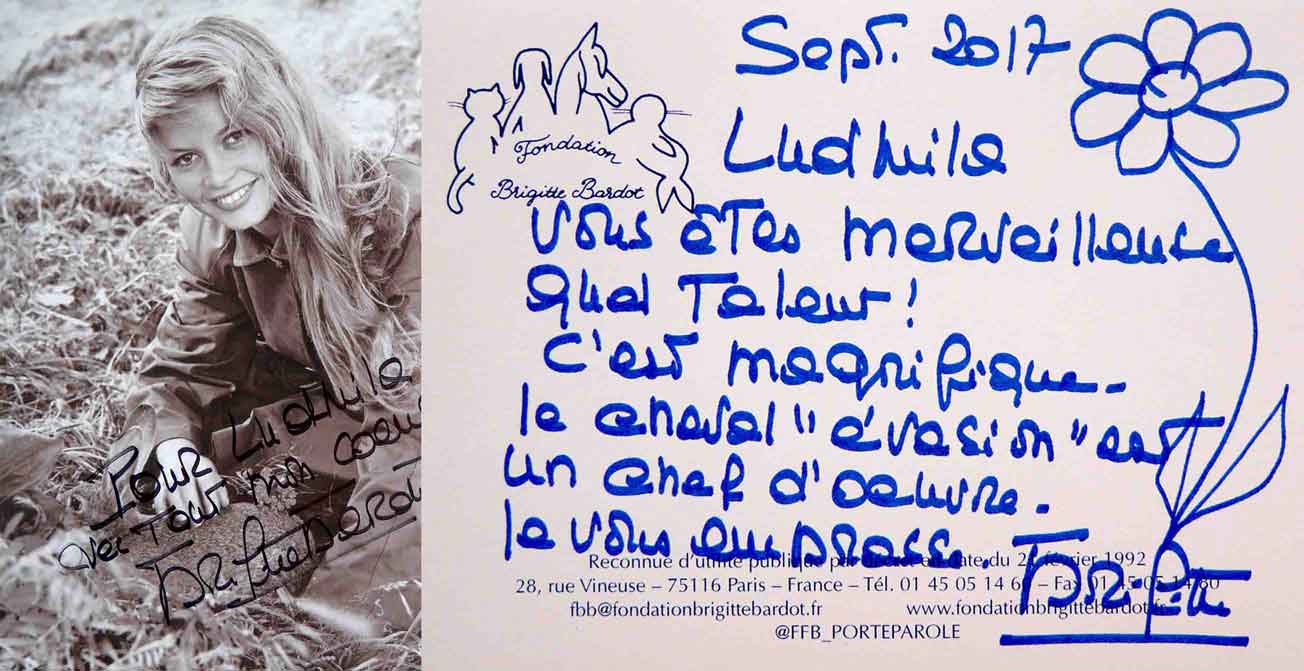 Pour Ludmila
avec Tout mon coeur
Brigitte Bardot
Fondation
Brigitte Bardot
Sept. 2017
Ludmila
Vous êtes merveilleuse
Quel Talent !
C'est magnifique.
le cheval "évasion" est
un chef d'oeuvre.
Je vous embrasse.
Brigitte
Reconnue d'utilité publique par décret en date du 21 février 1992
28, rue Vineuse – 75116 Paris – France – Tél. 01 45 05 14 60 – Fax 01 45 05 14 80
fbb@fondationbrigittebardot.fr www.fondationbrigittebardot.fr
@FFB_PORTEPAROLE